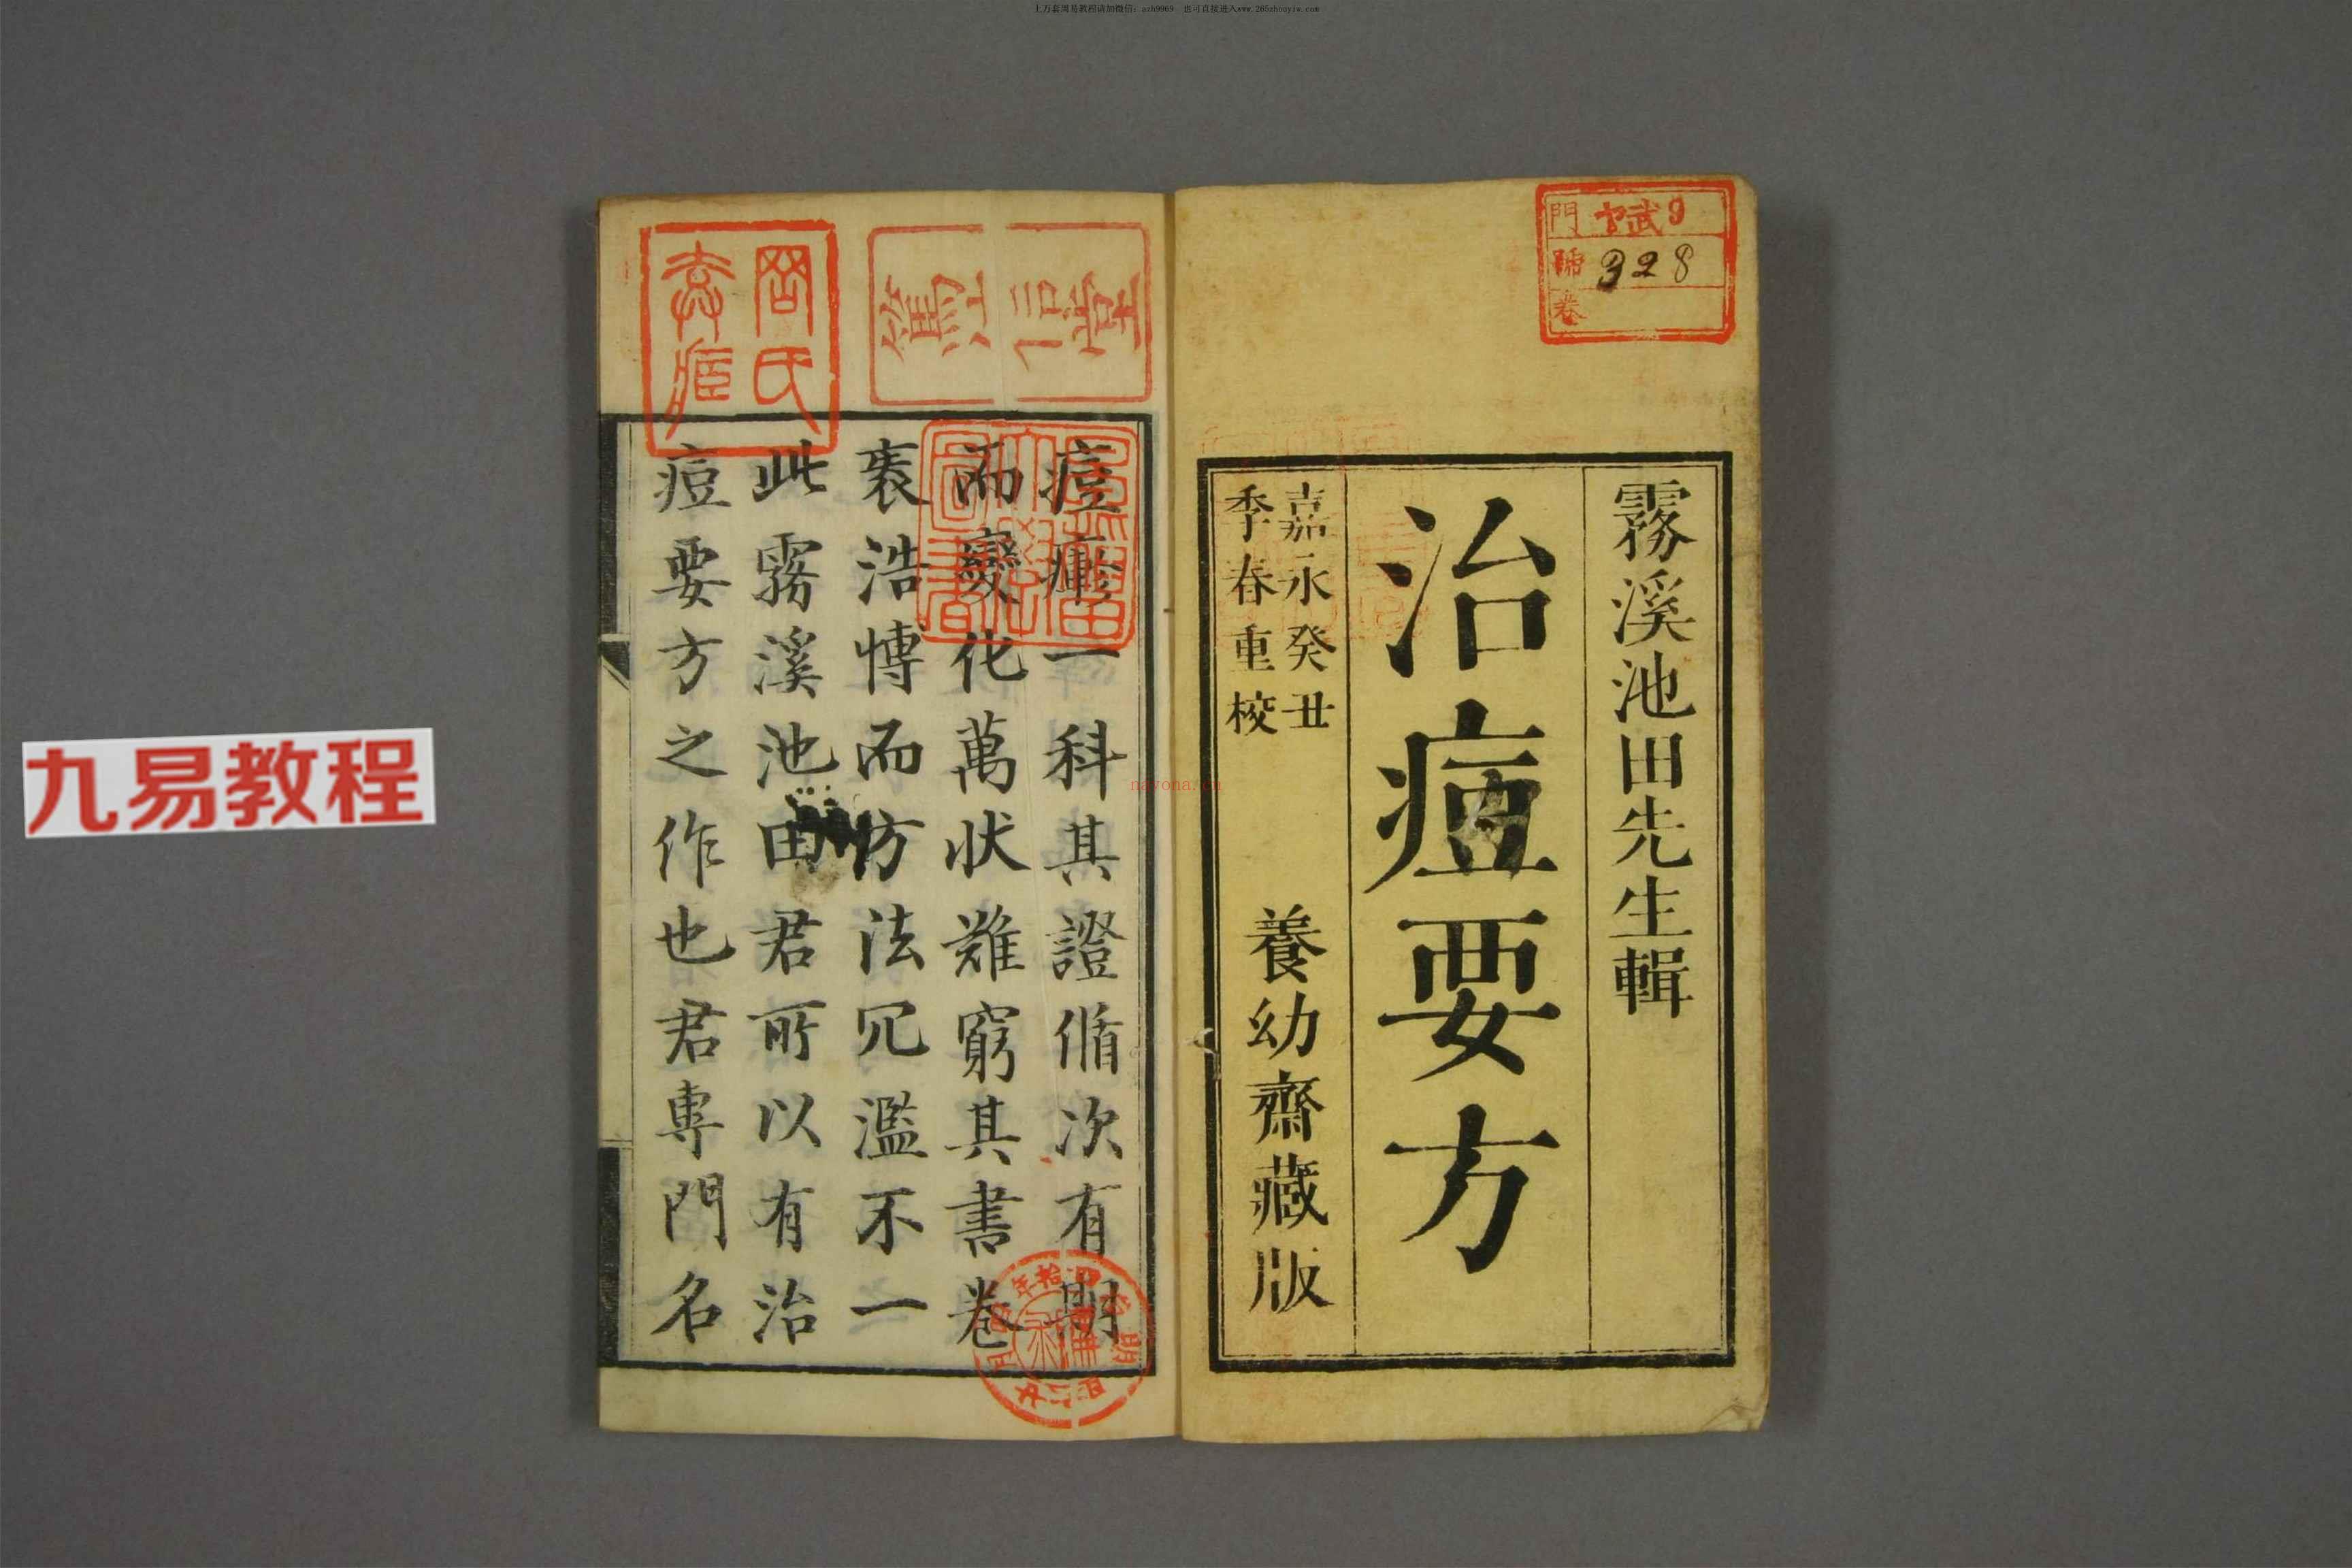 上万套周易教程请加微信：azh9969 也可直接进入www.265zhouyiw.com
門 武9
號 328
卷
霧溪池田先生輯
治痘要方
嘉永癸丑
季春重校
養幼齋藏版
痘癬一科其證脩次有期
而變化萬狀難窮其書卷
袠浩愽而方法冗濫不一
此霧溪池田君所以有治
痘要方之作也君專門名
nayona.cn
九易教程